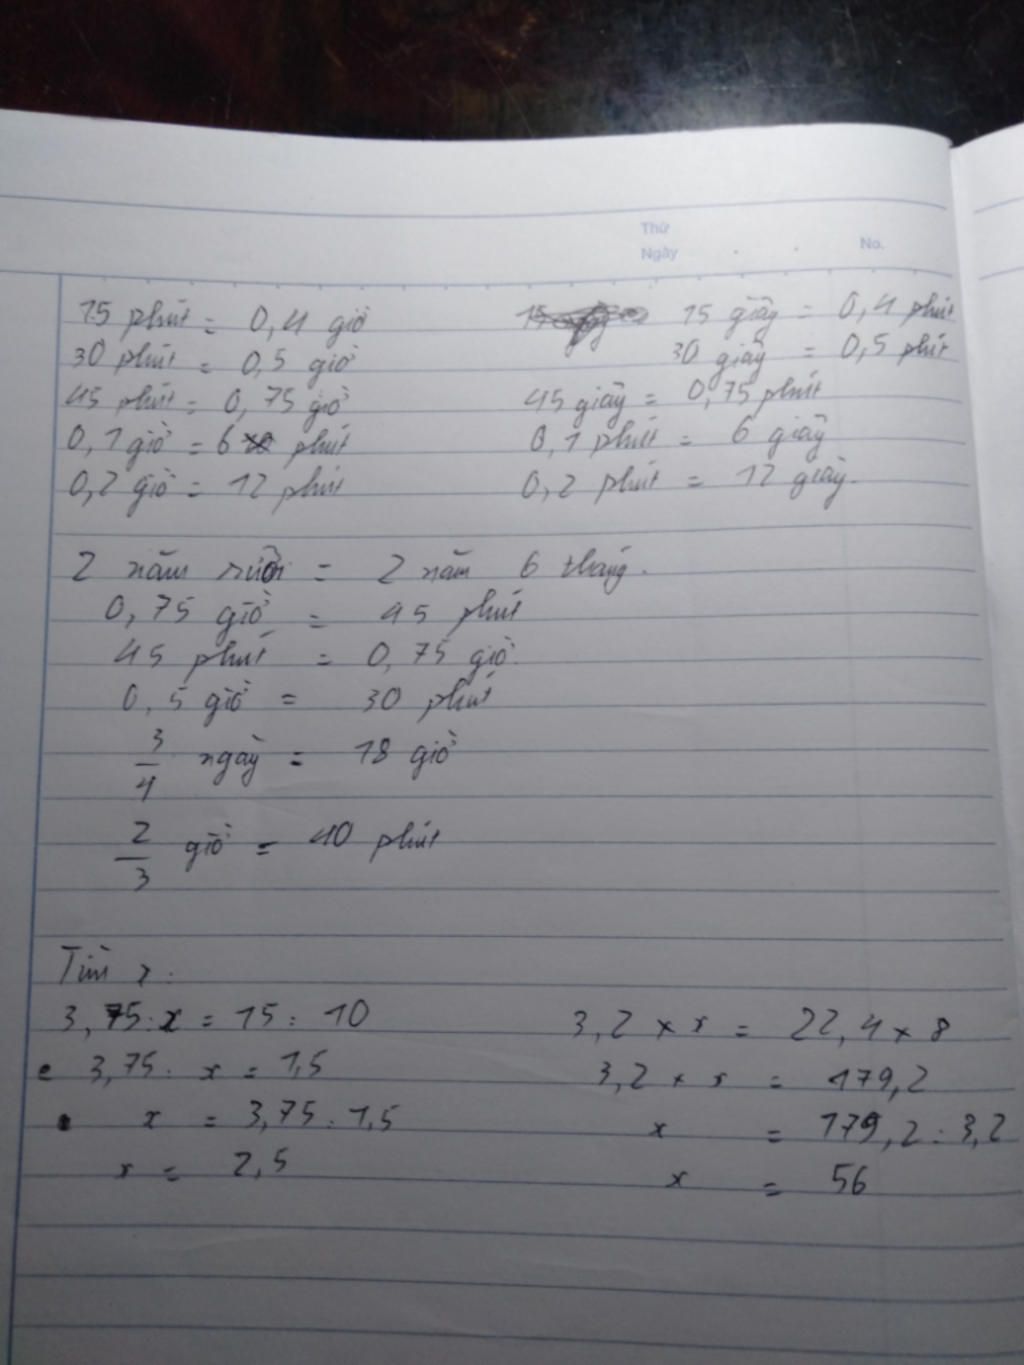 Thứ
Ngày No.
15 phút = 0,4 giờ 15 giây = 0,4 phút
30 phút = 0,5 giờ 30 giây = 0,5 phút
45 phút = 0,75 giờ 45 giây = 0,75 phút
0,1 giờ = 6 phút 0,1 phút = 6 giây
0,2 giờ = 12 phút 0,2 phút = 12 giây.
2 năm rưỡi = 2 năm 6 tháng.
0,75 giờ = 45 phút
45 phút = 0,75 giờ.
0,5 giờ = 30 phút
3/4 ngày = 18 giờ
2/3 giờ = 40 phút
Tìm x:
3,75 : x = 15 : 10 3,2 × x = 22,4 × 8
3,75 : x = 1,5 3,2 × x = 179,2
x = 3,75 : 1,5 x = 179,2 : 3,2
x = 2,5 x = 56